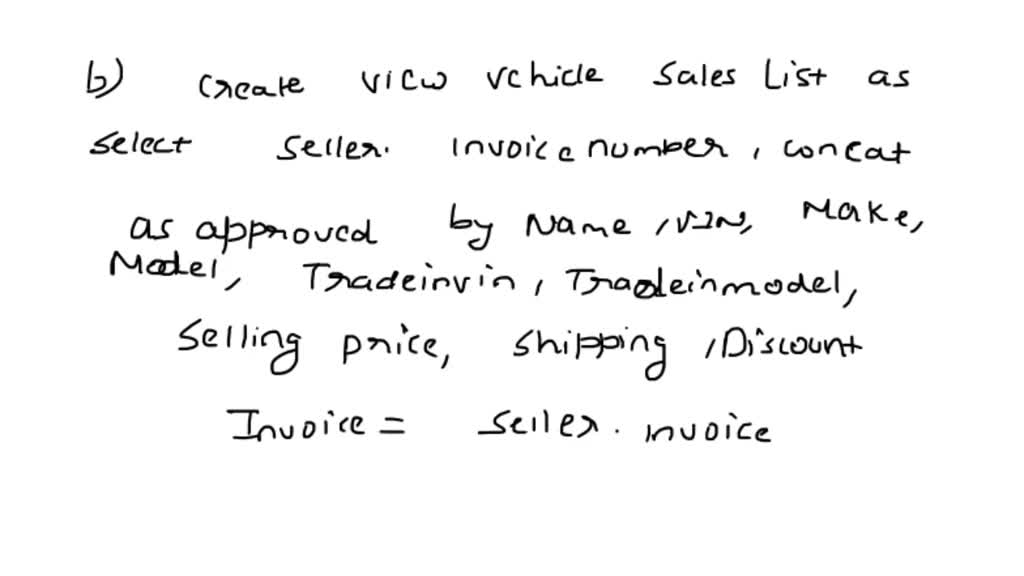 b) Create view vehicle Sales List as
select seller. invoice number, concat
as approved by Name, VIN, Make,
Model, Tradeinvin, Tradeinmodel,
Selling price, shipping, Discount
Invoice = seller. invoice